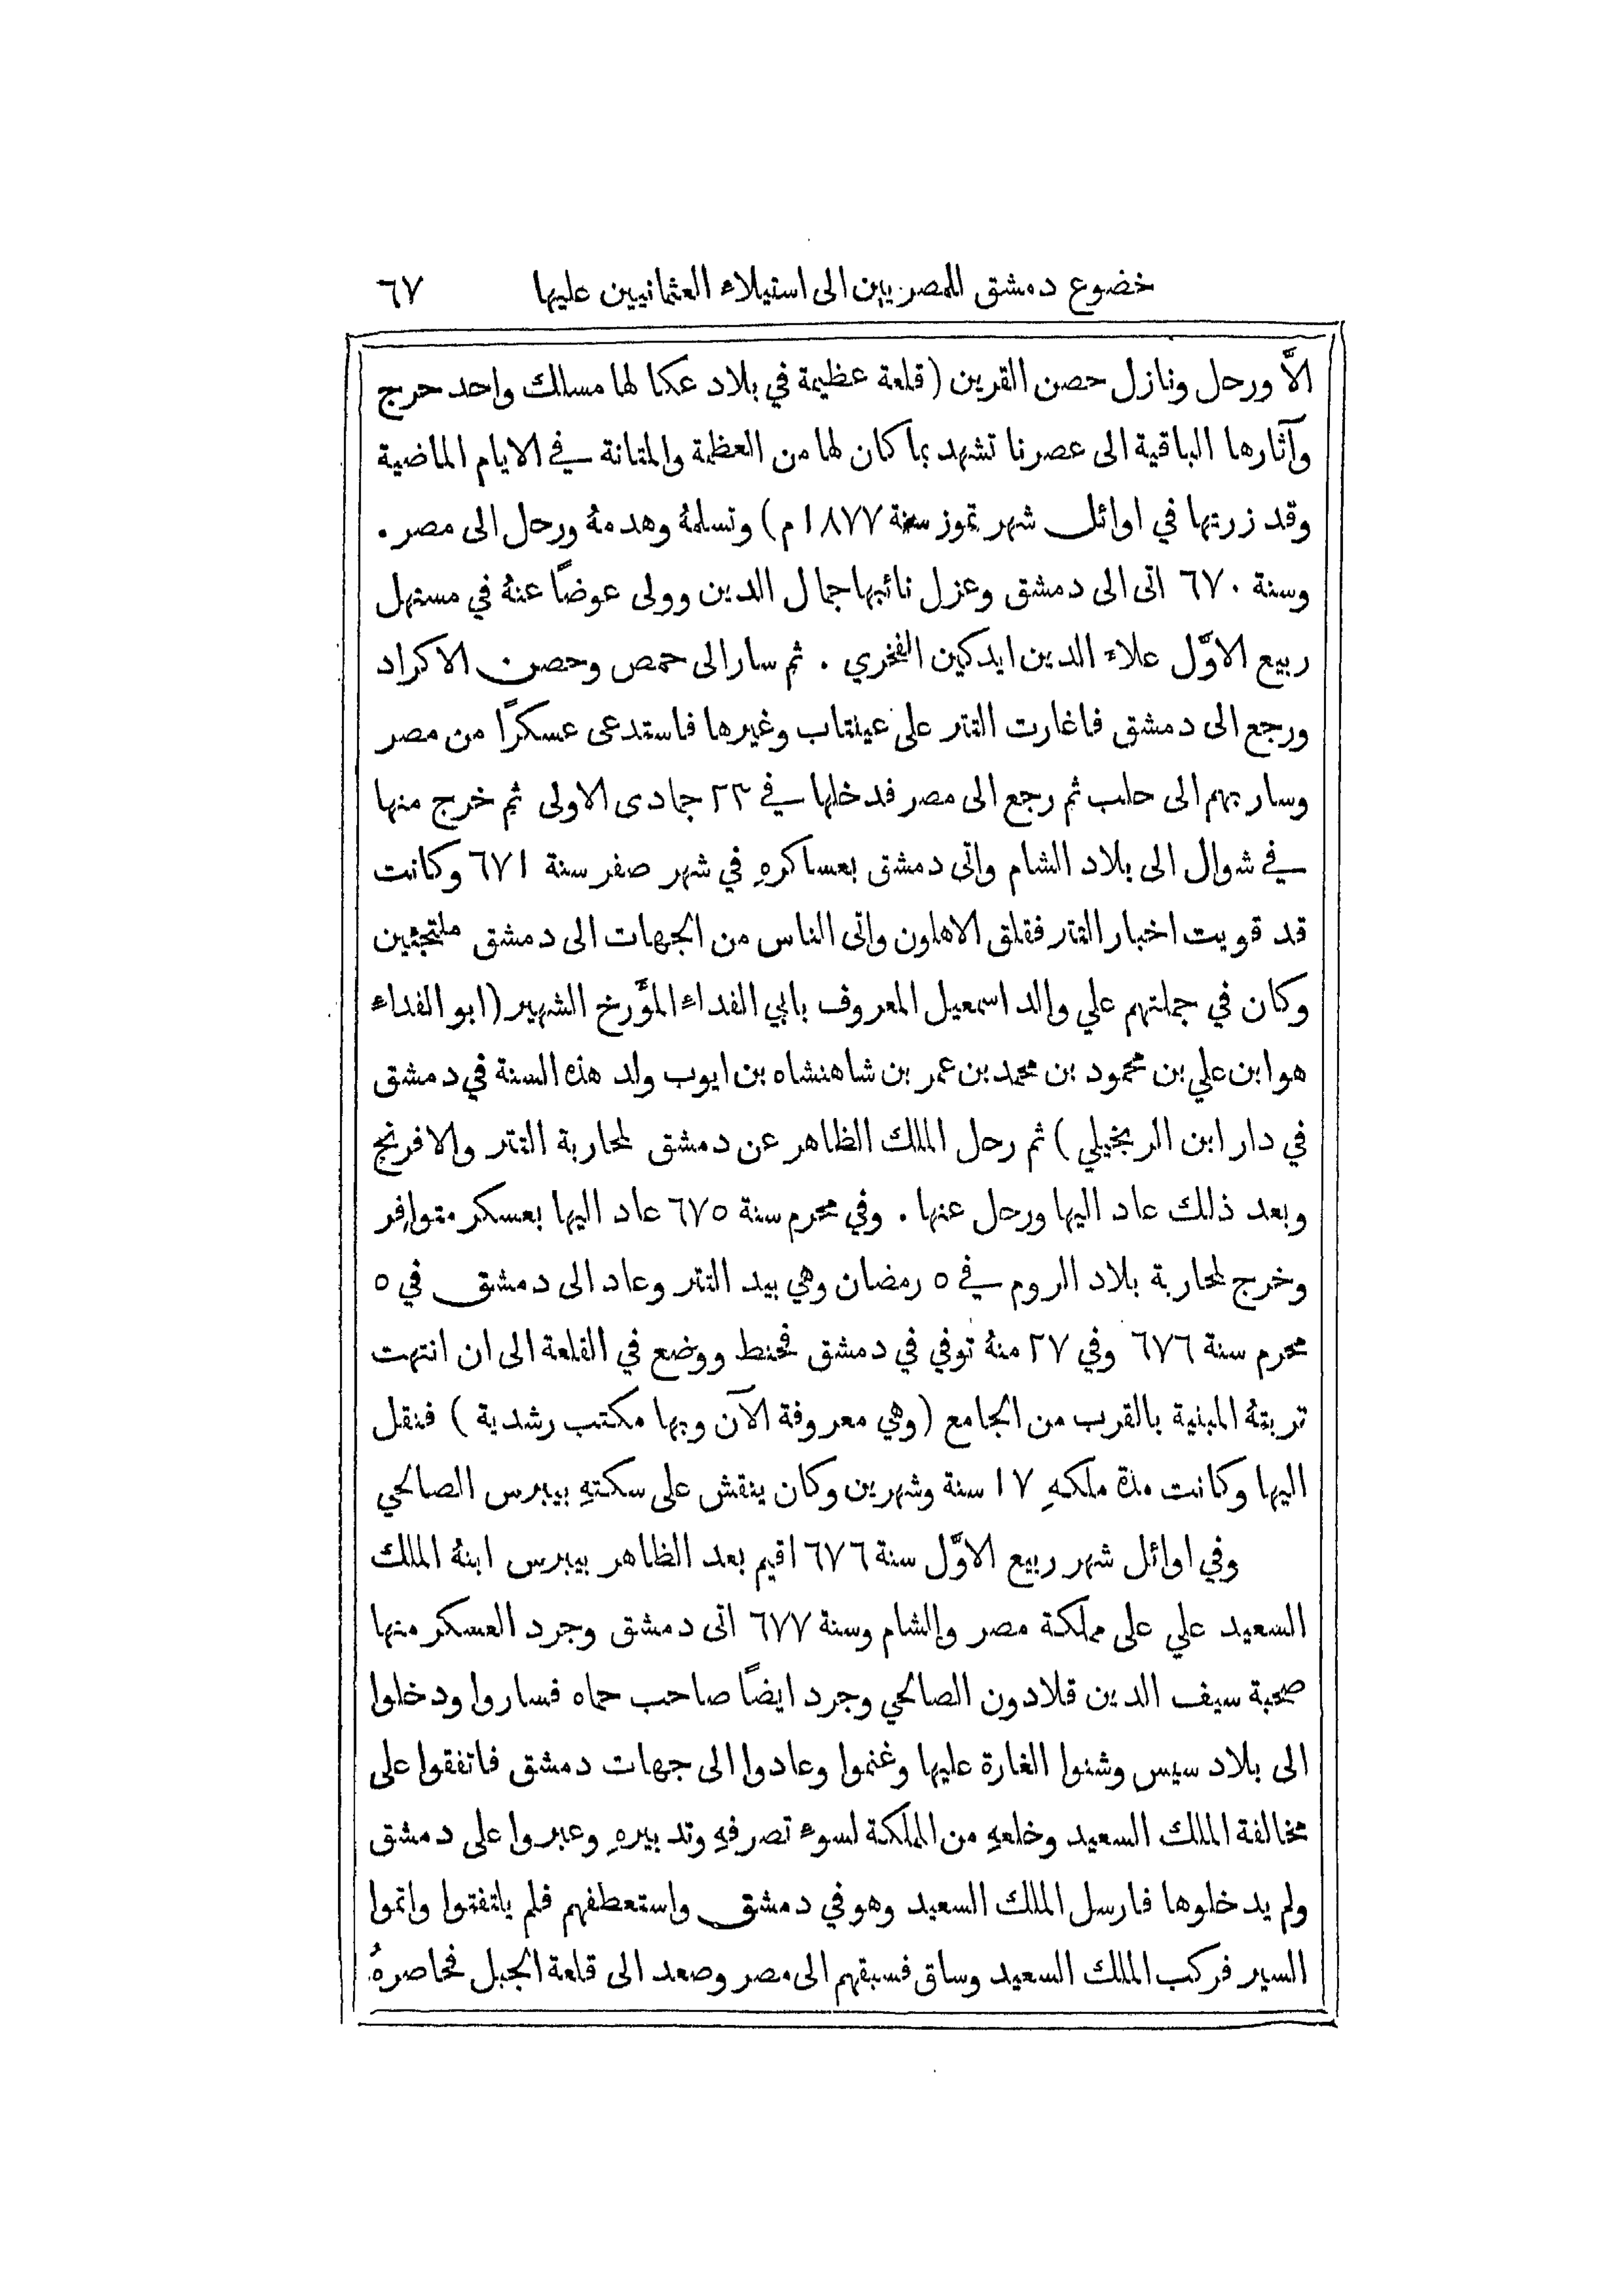 خضوع دمشق للمصريين الى استيلاء العثمانيين عليها ٦٧
الاَّ ورحل ونازل حصن القرين (قلعة عظيمة في بلاد عكا لها مسالك واحد حرج
وآثارها الباقية الى عصرنا تشهد بما كان لها من العظمة والمتانة في الايام الماضية
وقد زرتها في اوائل شهر تموز سنة ١٨٧٧م) وتسلمهُ وهدمهُ ورحل الى مصر .
وسنة ٦٧٠ اتى الى دمشق وعزل نائبها جمال الدين وولى عوضًا عنهُ في مستهل
ربيع الاوَّل علاء الدين ايدكين الفخري . ثم سار الى حمص وحصن الاكراد
ورجع الى دمشق فاغارت التتر على عينتاب وغيرها فاستدعى عسكرًا من مصر
وسار بهم الى حلب ثم رجع الى مصر فدخلها في ٢٣ جمادى الاولى ثم خرج منها
في شوال الى بلاد الشام واتى دمشق بعساكرهِ في شهر صفر سنة ٦٧١ وكانت
قد قويت اخبار التتر فقلق الاهلون واتى الناس من الجهات الى دمشق ملتجئين
وكان في جملتهم علي والد اسمعيل المعروف بابي الفداء المؤَّرخ الشهير (ابو الفداء
هو ابن علي بن محمود بن محمد بن عمر بن شاهنشاه بن ايوب ولد هذه السنة في دمشق
في دار ابن الربخيلي) ثم رحل الملك الظاهر عن دمشق لمحاربة التتر والافرنج
وبعد ذلك عاد اليها ورحل عنها . وفي محرم سنة ٦٧٥ عاد اليها بعسكر متوافر
وخرج لمحاربة بلاد الروم في ٥ رمضان وهي بيد التتر وعاد الى دمشق في ٥
محرم سنة ٦٧٦ وفي ٢٧ منهُ توفي في دمشق فحنط ووضع في القلعة الى ان انتهت
تربتهُ المبنية بالقرب من الجامع (وهي معروفة الآن وبها مكتب رشدية) فنقل
اليها وكانت مدة ملكهِ ١٧ سنة وشهرين وكان ينقش على سكتهِ بيبرس الصالحي
وفي اوائل شهر ربيع الاوَّل سنة ٦٧٦ اقيم بعد الظاهر بيبرس ابنهُ الملك
السعيد علي على مملكة مصر والشام وسنة ٦٧٧ اتى دمشق وجرد العسكر منها
صحبة سيف الدين قلادون الصالحي وجرد ايضًا صاحب حماه فساروا ودخلوا
الى بلاد سيس وشنوا الغارة عليها وغنموا وعادوا الى جهات دمشق فاتفقوا على
مخالفة الملك السعيد وخلعهِ من المملكة لسوء تصرفهِ وتدبيرهِ وعبروا على دمشق
ولم يدخلوها فارسل الملك السعيد وهو في دمشق واستعطفهم فلم يلتفتوا واتموا
السير فركب الملك السعيد وساق فسبقهم الى مصر وصعد الى قلعة الجبل فحاصرهُ